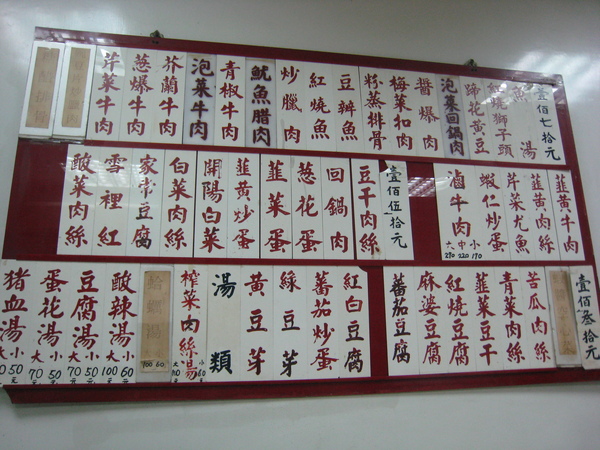 壹佰七十元
魚湯
紅燒獅子頭
蹄花黃豆
泡菜回鍋肉
醬爆肉
梅菜扣肉
粉蒸排骨
豆瓣魚
紅燒魚
炒臘肉
魷魚腊肉
青椒牛肉
泡菜牛肉
芥蘭牛肉
葱爆牛肉
芹菜牛肉
韮黃牛肉
韮黃肉絲
芹菜尤魚
蝦仁炒蛋
滷牛肉 大270 中220 小170
壹佰伍拾元
豆干肉絲
回鍋肉
葱花蛋
韮菜蛋
韮黃炒蛋
開陽白菜
白菜肉絲
家常豆腐
雪裡紅
酸菜肉絲
壹佰叁拾元
苦瓜肉絲
青菜肉絲
韮菜豆干
紅燒豆腐
麻婆豆腐
蕃茄豆腐
紅白豆腐
蕃茄炒蛋
綠豆芽
黃豆芽
湯類
榨菜肉絲湯
酸辣湯 大100 小60元
豆腐湯 大70 小50元
蛋花湯 大70 小50元
豬血湯